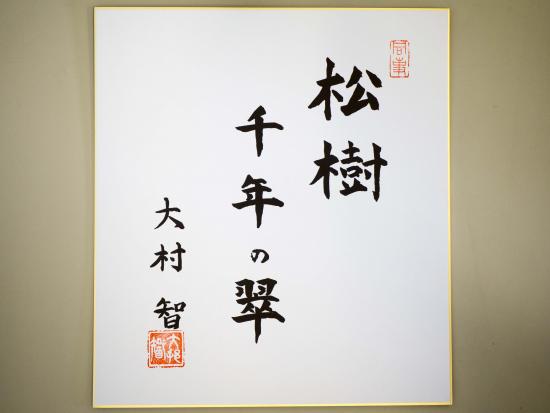 松樹
千年の翠
大村智